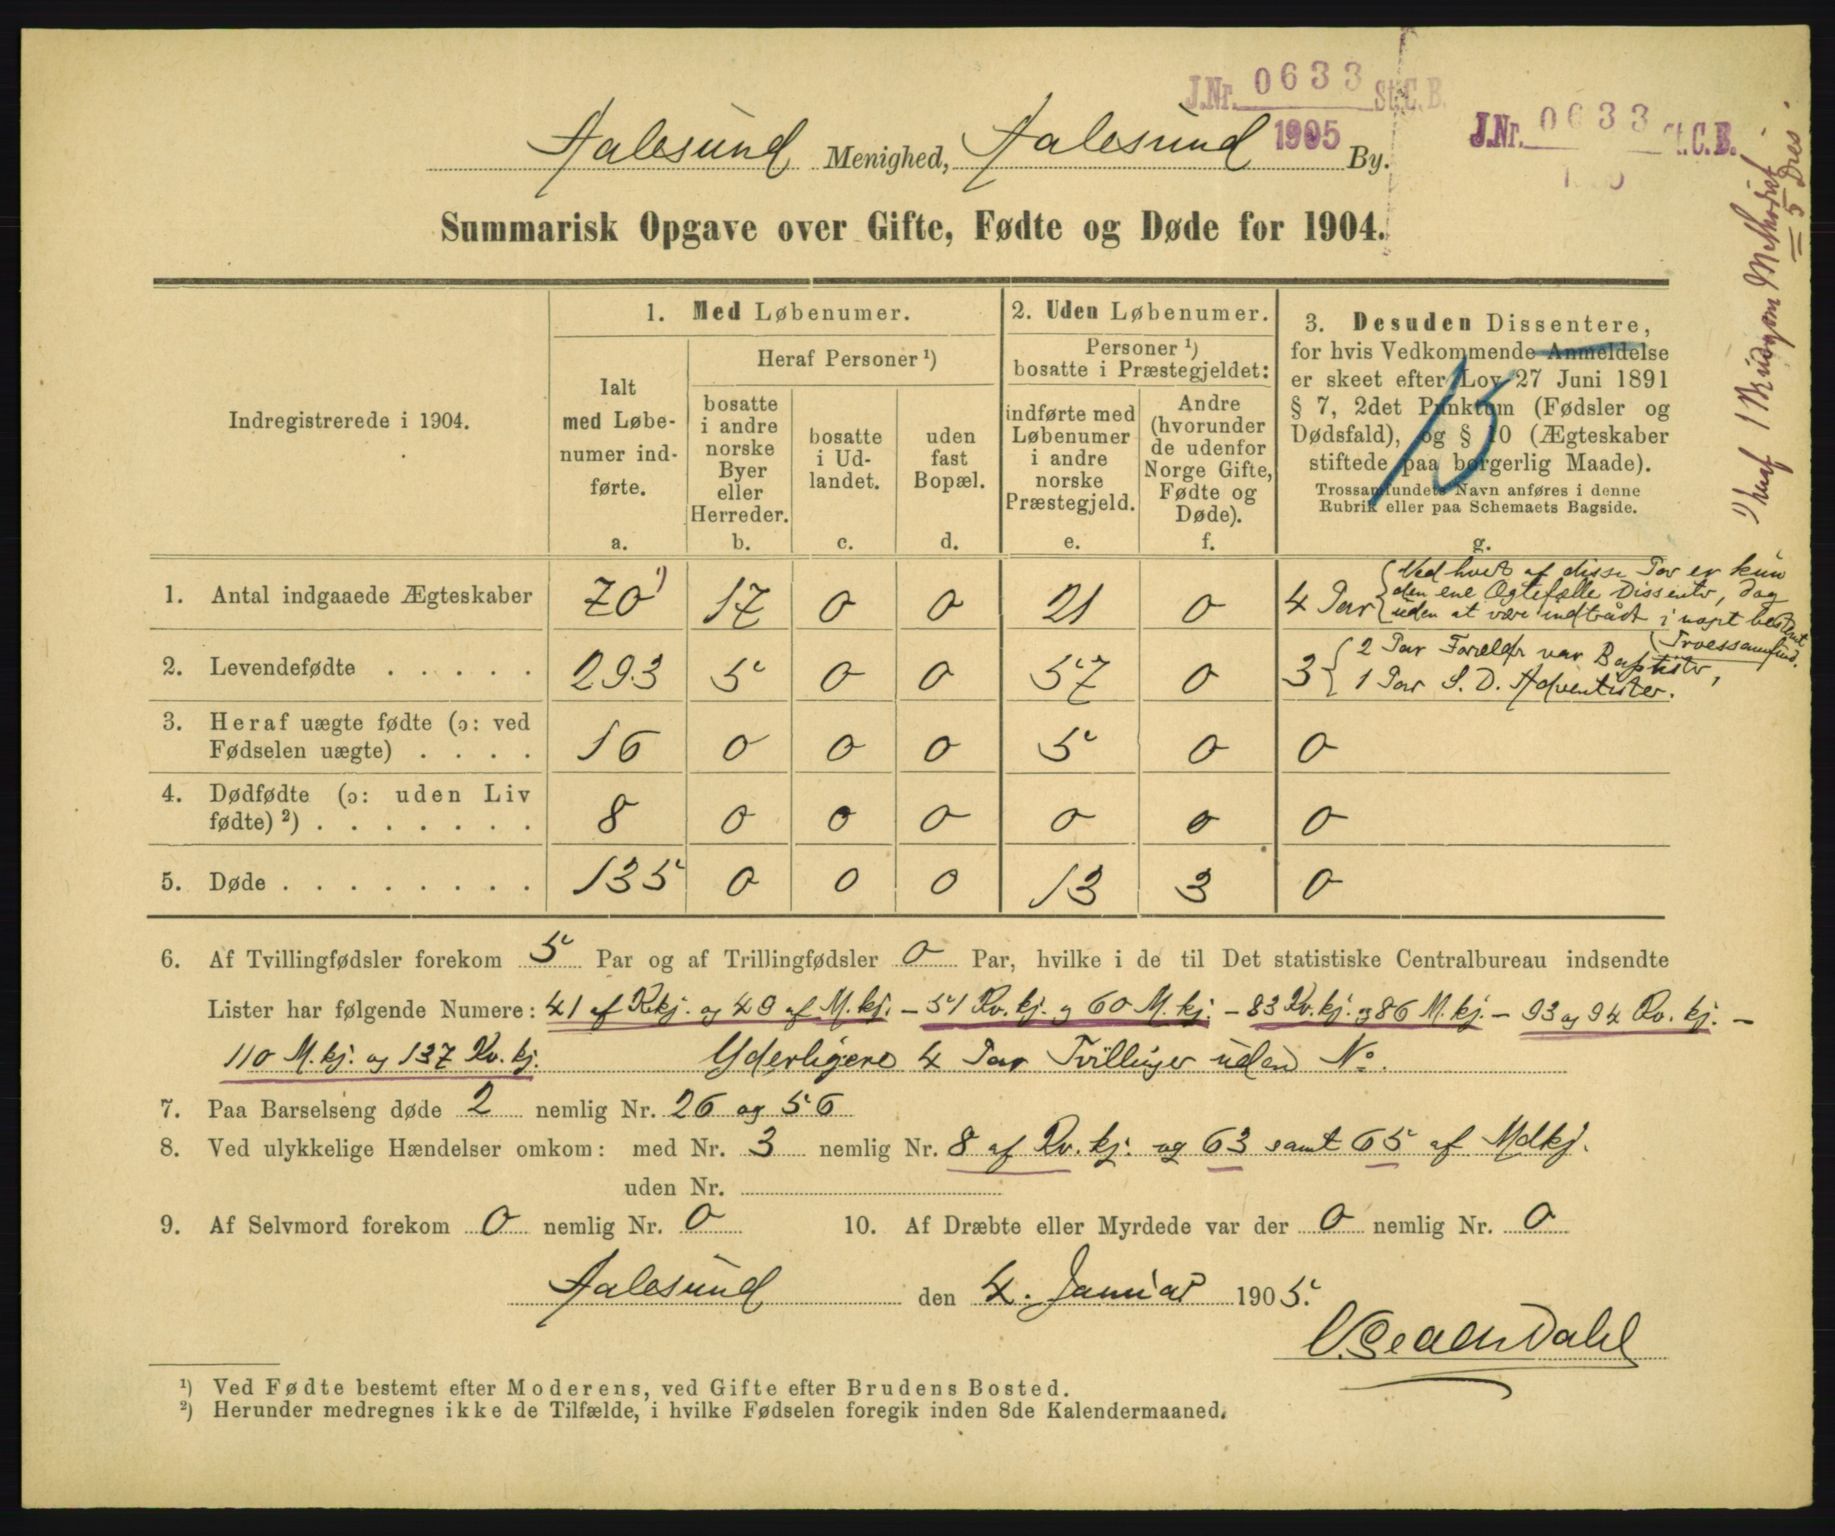 J.Nr. 0633 St.C.B.
1905
J.Nr. 0633 St.C.B.
Aalesund Menighed, Aalesund By.
Summarisk Opgave over Gifte, Fødte og Døde for 1904.
Indregistrerede i 1904.
1. Med Løbenumer.
Ialt
med Løbe-
numer ind-
førte.
a.
Heraf Personer ¹)
bosatte
i andre
norske
Byer
eller
Herreder.
b.
bosatte
i Ud-
landet.
c.
uden
fast
Bopæl.
d.
2. Uden Løbenumer.
Personer ¹)
bosatte i Præstegjeldet:
indførte med
Løbenumer
i andre
norske
Præstegjeld.
e.
Andre
(hvorunder
de udenfor
Norge Gifte,
Fødte og
Døde).
f.
3. Desuden Dissentere,
for hvis Vedkommende Anmeldelse
er skeet efter Lov 27 Juni 1891
§ 7, 2det Punktum (Fødsler og
Dødsfald), og § 10 (Ægteskaber
stiftede paa borgerlig Maade).
Trossamfundets Navn anføres i denne
Rubrik eller paa Schemaets Bagside.
g.
1. Antal indgaaede Ægteskaber 70 ¹) 17 0 0 21 0 4 Par { Ved hvert af disse Par er kun
den ene Ægtefælle Dissenter, dog
uden at være indtrådt i noget bestemt
Troessamfund.
2. Levendefødte . . . . . 293 5 0 0 57 0 3 { 2 Par Foreldr var Baptister,
1 Par S. D. Adventister.
3. Heraf uægte fødte (ɔ: ved
Fødselen uægte) . . . . 16 0 0 0 5 0 0
4. Dødfødte (ɔ: uden Liv
fødte) ²) . . . . . . . 8 0 0 0 0 0 0
5. Døde . . . . . . . . 135 0 0 0 13 3 0
6. Af Tvillingfødsler forekom 5 Par og af Trillingfødsler 0 Par, hvilke i de til Det statistiske Centralbureau indsendte
Lister har følgende Numere: 41 af Kvkj. og 49 af M.kj. – 51 Kv.kj. og 60 M.kj. – 83 Kv.kj. og 86 M.kj. – 93 og 94 Kv.kj. –
110 M.kj. og 137 Kv.kj. Yderligere 4 Par Tvillinger uden No.
7. Paa Barselseng døde 2 nemlig Nr. 26 og 56
8. Ved ulykkelige Hændelser omkom: med Nr. 3 nemlig Nr. 8 af Kv.kj. og 63 samt 65 af Mdkj.
uden Nr.
9. Af Selvmord forekom 0 nemlig Nr. 0 10. Af Dræbte eller Myrdede var der 0 nemlig Nr. 0
Aalesund den 4. Januar 1905.
¹) Ved Fødte bestemt efter Moderens, ved Gifte efter Brudens Bosted.
²) Herunder medregnes ikke de Tilfælde, i hvilke Fødselen foregik inden 8de Kalendermaaned.
¹) heraf 1 Brudgom Methodist
= 5 Diss